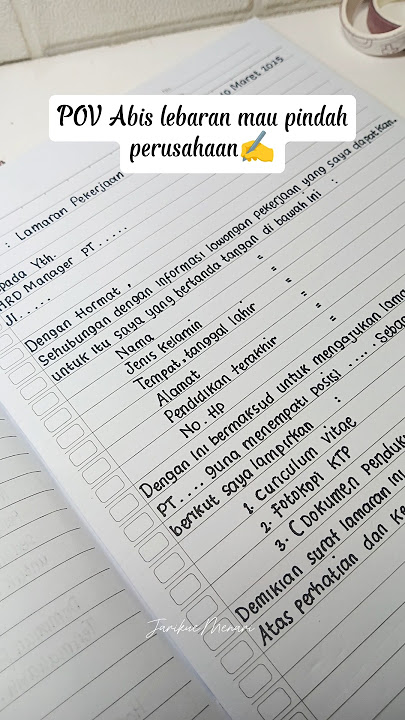 POV Abis lebaran mau pindah
perusahaan✍️
Maret 2025
: Lamaran Pekerjaan
Yth.
HRD Manager PT.....
Jl.....
Dengan Hormat,
Sehubungan dengan informasi lowongan pekerjaan yang saya dapatkan.
untuk itu saya yang bertanda tangan di bawah ini :
Nama :
Jenis Kelamin :
Tempat, tanggal lahir :
Alamat :
Pendidikan terakhir :
No. HP :
Dengan ini bermaksud untuk mengajukan
PT..... guna menempati posisi .....
berikut saya lampirkan :
1. Curiculum Vitae
2. Fotokopi KTP
3. ( Dokumen
Demikian surat lamaran ini
Atas perhatian dan
Jarikue Menari